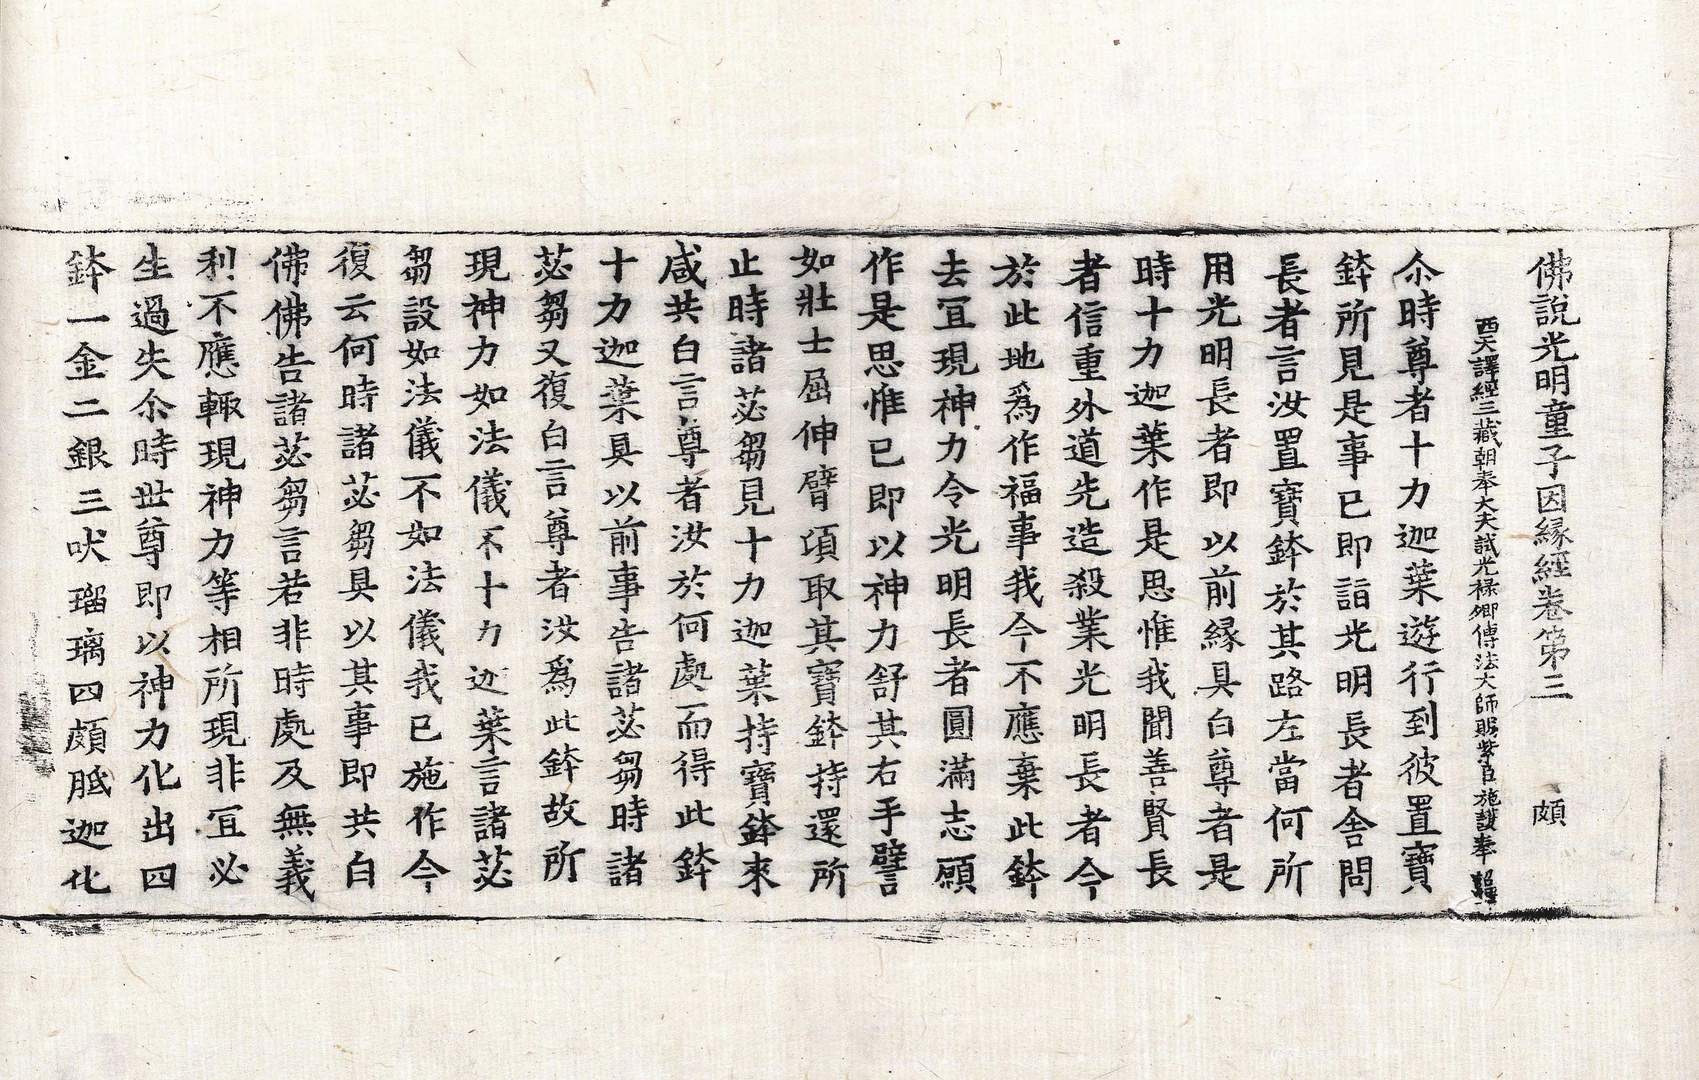 佛說光明童子因縁經卷第三　頗
西天譯經三藏朝奉大夫試光祿卿傳法大師賜紫臣施護奉 詔譯
尒時尊者十力迦葉遊行到彼置寶
鉢所見是事已即詣光明長者舍問
長者言汝置寶鉢於其路左當何所
用光明長者即以前縁具白尊者是
時十力迦葉作是思惟我聞善賢長
者信重外道先造殺業光明長者今
於此地爲作福事我今不應棄此鉢
去冝現神力令光明長者圓滿志願
作是思惟已即以神力舒其右手譬
如壯士屈伸臂項取其寶鉢持還所
止時諸苾芻見十力迦葉持寶鉢來
咸共白言尊者汝於何處而得此鉢
十力迦葉具以前事告諸苾芻時諸
苾芻又復白言尊者汝爲此鉢故所
現神力如法儀不十力迦葉言諸苾
芻設如法儀不如法儀我已施作今
復云何時諸苾芻具以其事即共白
佛佛告諸苾芻言若非時處及無義
利不應輙現神力等相所現非冝必
生過失尒時世尊即以神力化出四
鉢一金二銀三吠瑠璃四頗胝迦化